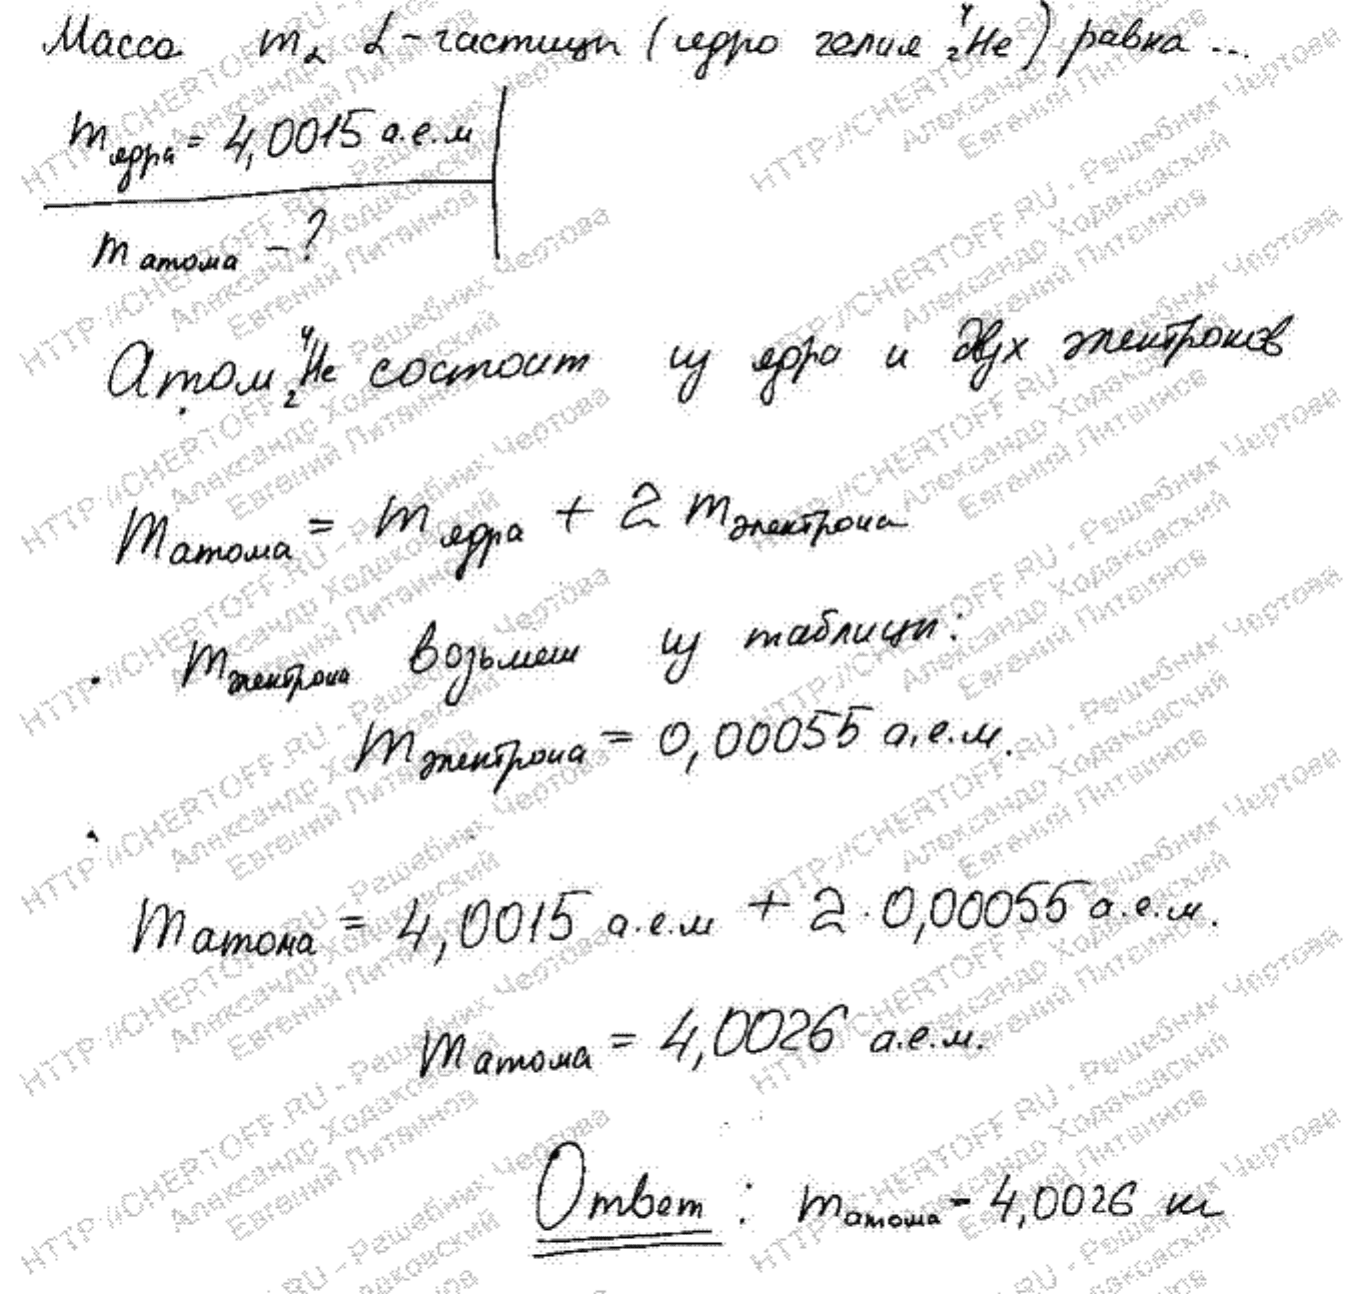 Масса m α α-частицы (ядро гелия ⁴₂He) равна ...
m ядра = 4,0015 а.е.м
m атома - ?
Атом ⁴₂He состоит из ядра и двух электронов
m атома = m ядра + 2 m электрона
m электрона возьмем из таблицы:
m электрона = 0,00055 а.е.м.
m атома = 4,0015 а.е.м + 2 · 0,00055 а.е.м.
m атома = 4,0026 а.е.м.
Ответ: m атома - 4,0026 кг
HTTP://CHERTOFF.RU - Решебник Чертова
Александр Ходаковский
Евгений Литвинов